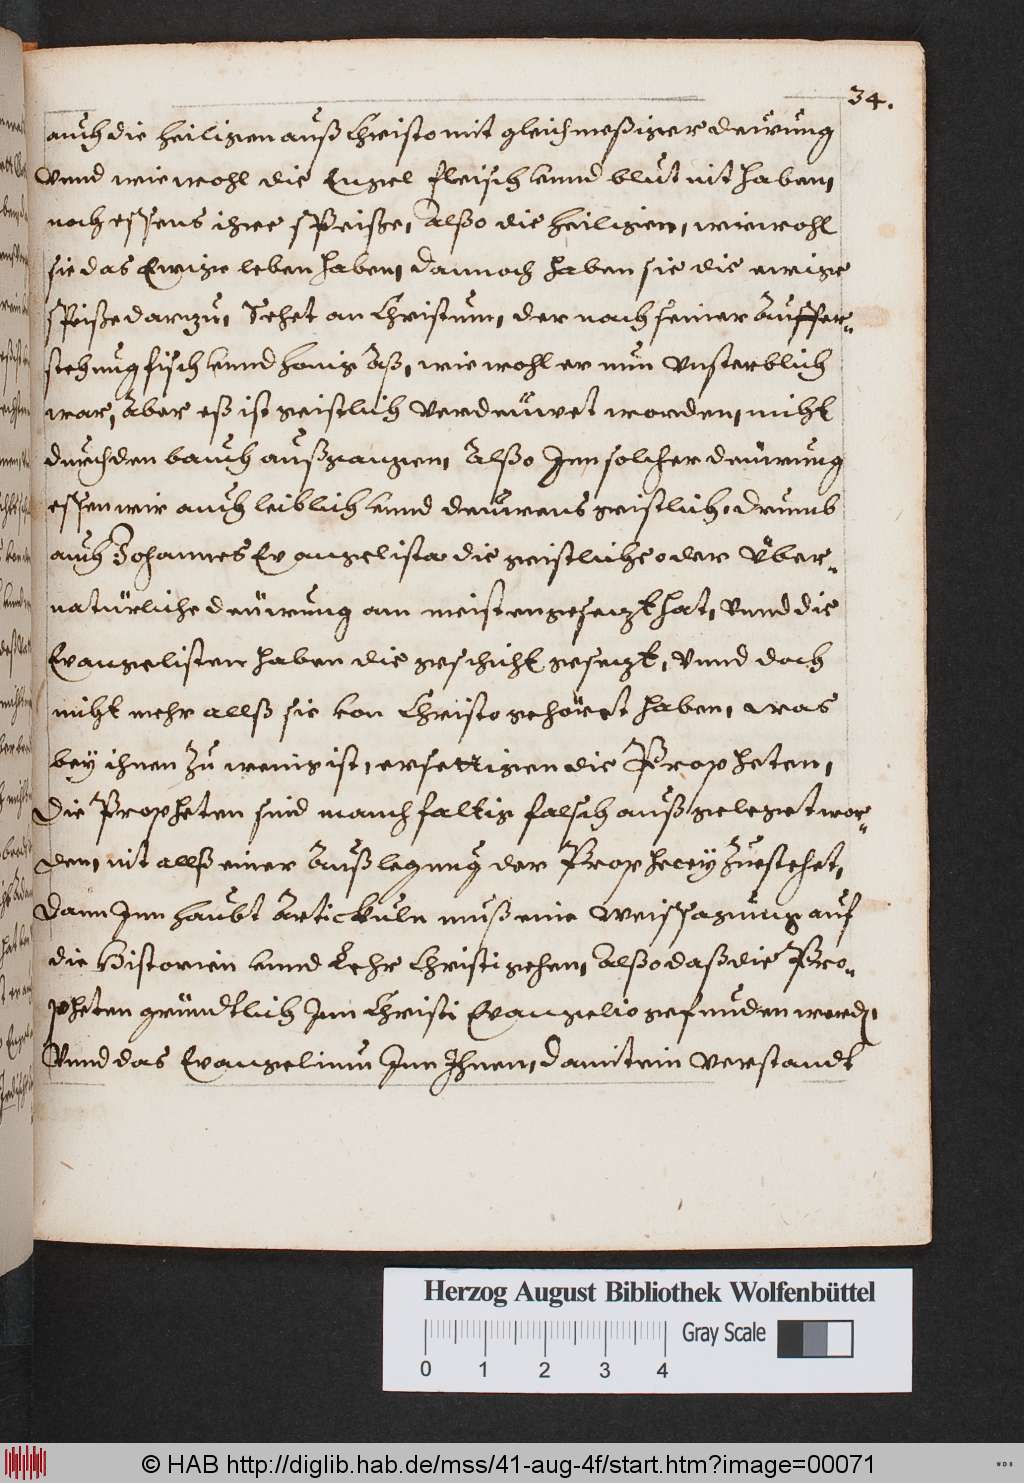 34.
auch die heiligen auß Christo mit gleichmeßiger deüwung
Vnnd wiewohl die Engel fleisch vnnd blut nit haben,
noch essens ihre speiße, Alßo die heiligen, wiewohl
sie das Ewige leben haben, dannoch haben sie die ewige
speiße darzu, Sehet an Christum, der nach seiner Auffer-
stehung fisch vnnd honig Aß, wiewohl er nun Vnsterblich
war, Aber eß ist geistlich Verdeüwet worden, nicht
durch den bauch außgangen, Alßo Inn solcher deüwung
essen wir auch leiblich vnnd deuwens geistlich, drumb
auch Johannes Evangelista die geistliche oder Über-
natürliche deüwung am meisten gesezt hat, Vnnd die
Evangelisten haben die geschicht gesezt, Vnnd doch
nicht mehr allß sie von Christo gehöret haben, was
bey ihnen zu wenig ist, ersettigen die Propheten,
Die Propheten sind manchfaltig falsch außgeleget wor-
den, nit allß einer Außlegung der Prophecey Zuestehet,
Dann Inn haubt Artickuln muß eine Weissagung auf
die Historien vnnd Lehr Christi gehen, Alßo daß die Pro-
pheten gründtlich Inn Christi Evangelio gefunden werdn,
Vnnd das Evangelium Inn Ihnen, damit ein Verstandt
Herzog August Bibliothek Wolfenbüttel
Gray Scale
0 1 2 3 4
© HAB http://diglib.hab.de/mss/41-aug-4f/start.htm?image=00071